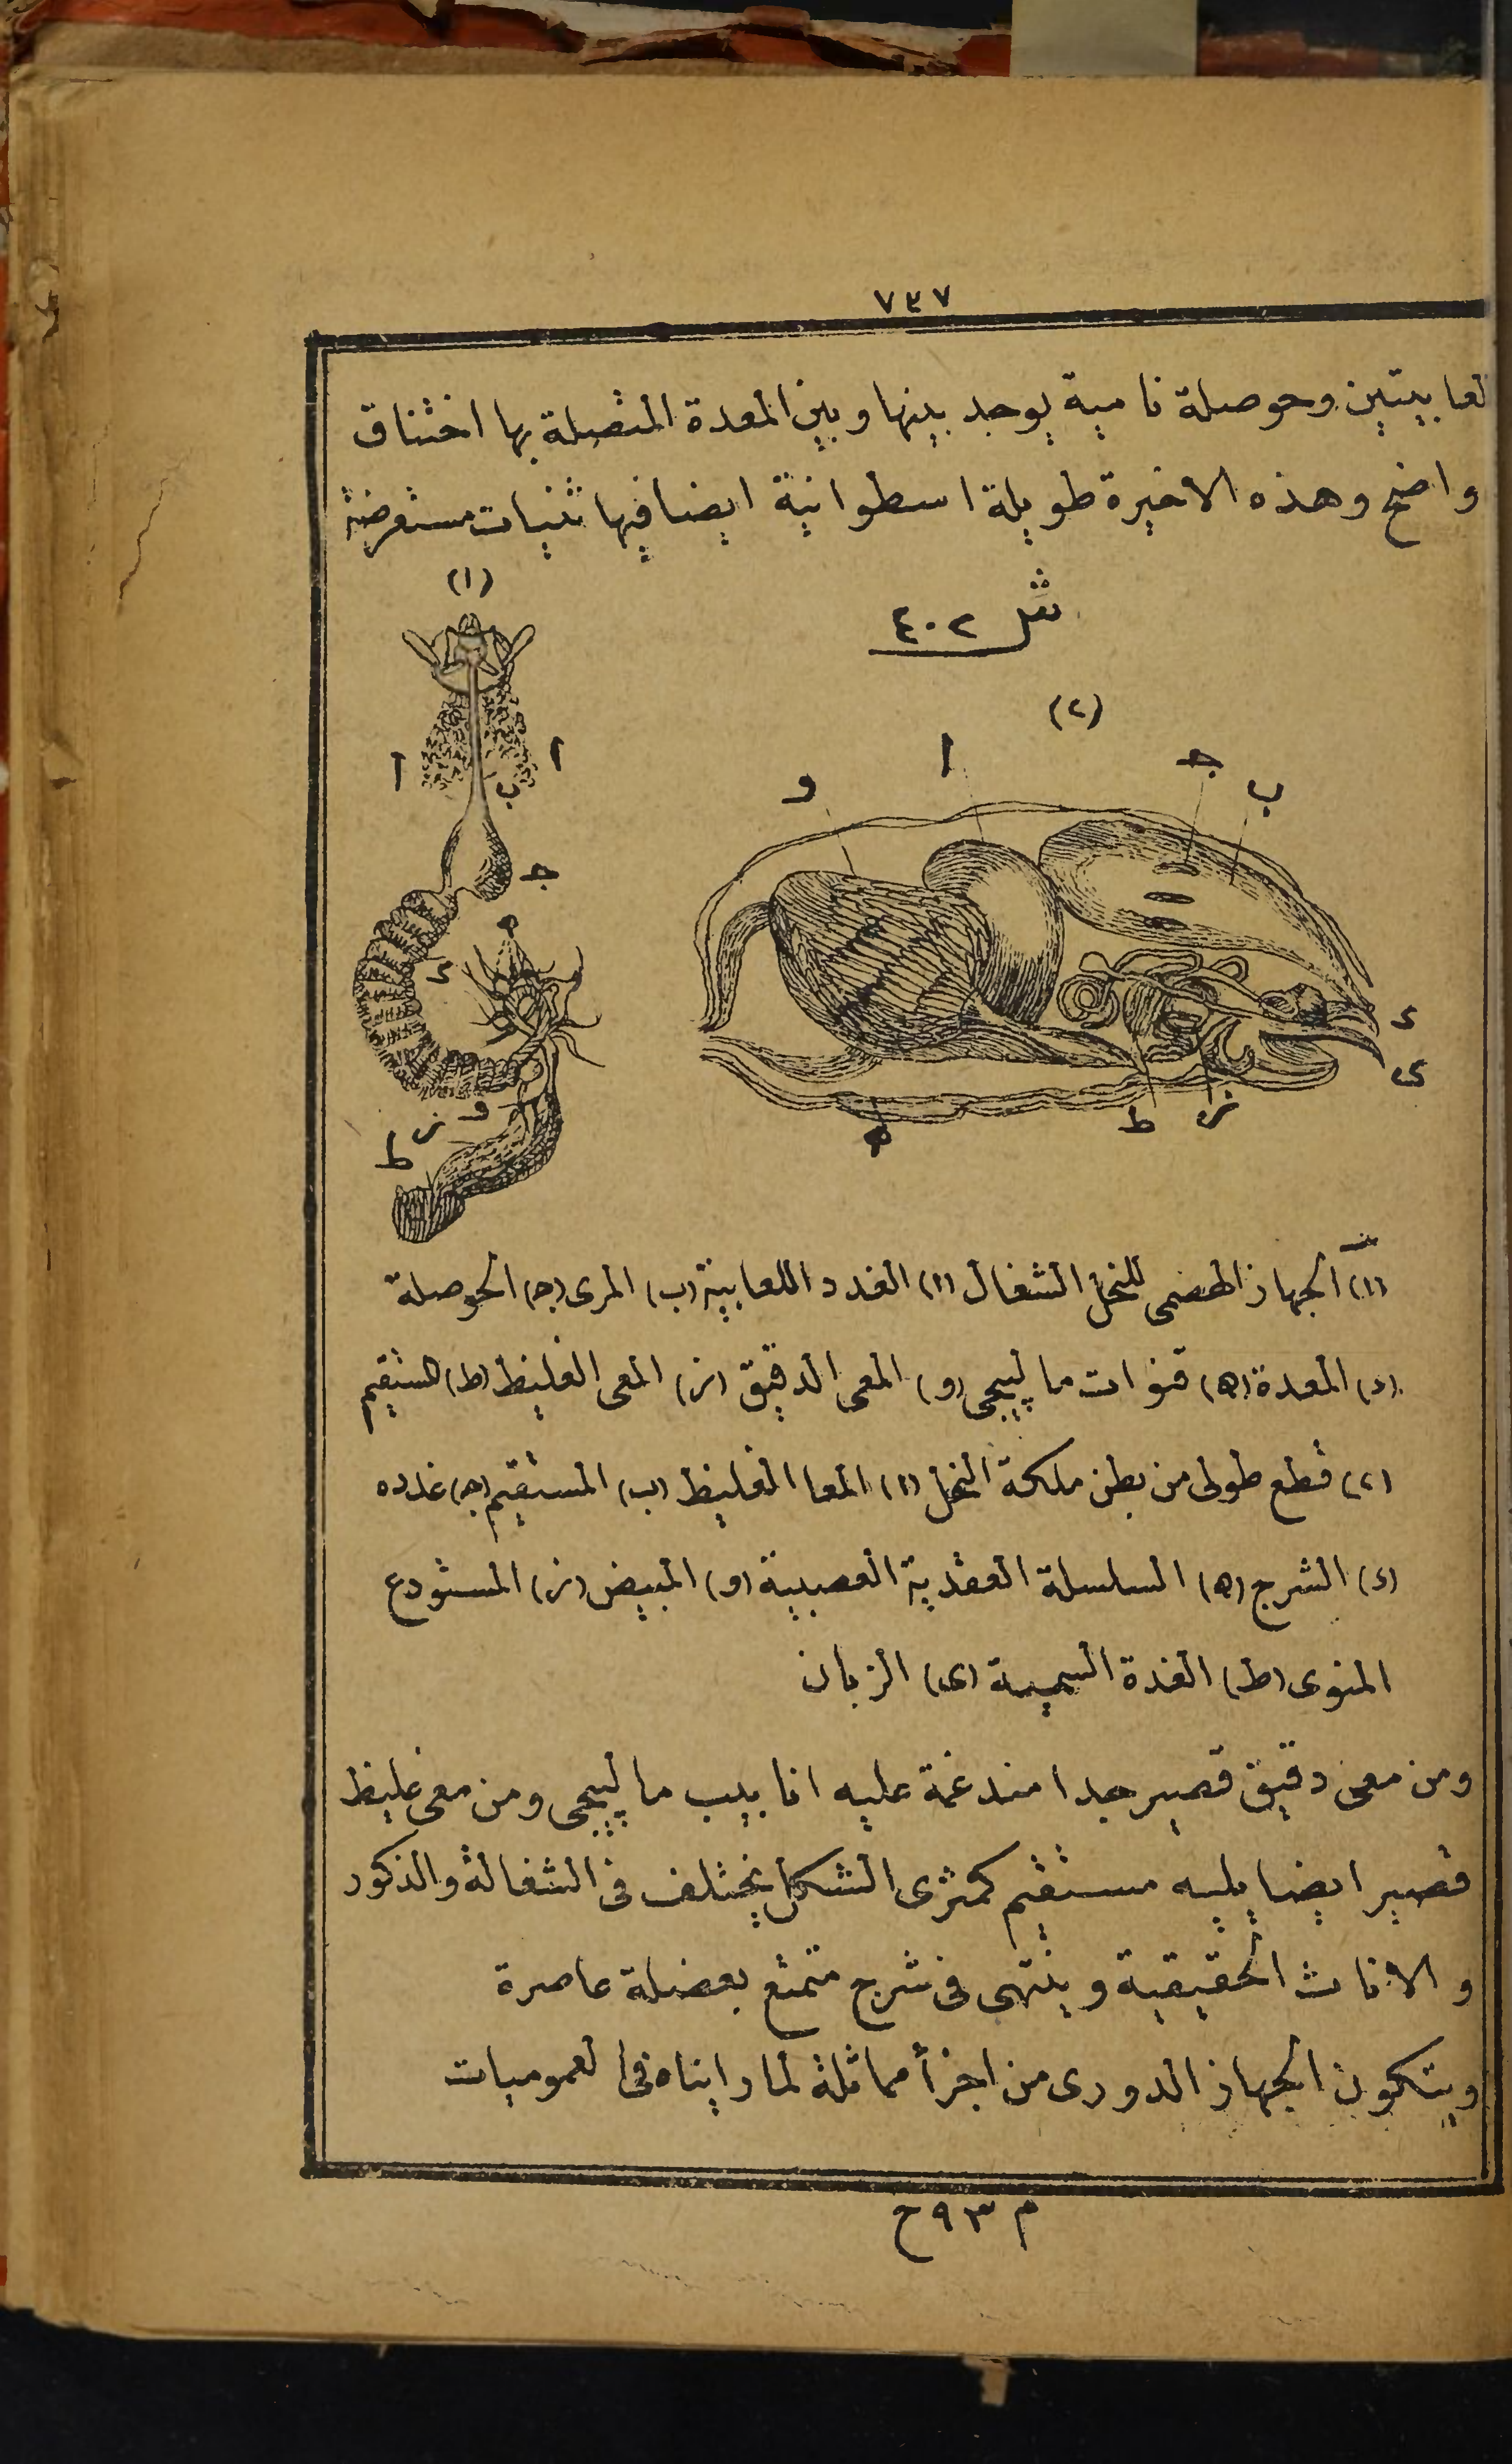 ٧٣٧
لعابيتين وحوصلة نامية يوجد بينها وبين المعدة المتصلة بها اختناق
واضح وهذه الاخيرة طويلة اسطوانية ايضا فيها ثنيات مستعرضة
شكل ٤٠٢
(١)
(٢)
ا ا ب ج د ه و ز ط
و ا ج ب د ى ز ط ه
(١) الجهاز الهضمى للنحل الشغال (ا) الغدد اللعابية (ب) المرى (ج) الحوصلة
(د) المعدة (ه) قنوات مالپيجى (و) المعى الدقيق (ز) المعى الغليظ (ط) المستقيم
(٢) قطع طولى من بطن ملكة النحل (ا) المعا الغليظ (ب) المستقيم (ج) غدده
(د) الشرج (ه) السلسلة العقدية العصبية (و) المبيض (ز) المستودع
المنوى (ط) الغدة السمية (ى) الزبان
ومن معى دقيق قصير جدا مندغمة عليه انابيب مالپيجى ومن معى غليظ
قصير ايضا يليه مستقيم كمثرى الشكل يختلف فى الشغالة والذكور
والاناث الحقيقية وينتهى فى شرج متمتع بعضلة عاصرة
ويتكون الجهاز الدورى من اجزأ مماثلة لما رايناه فى العموميات
م ٩٣ ح